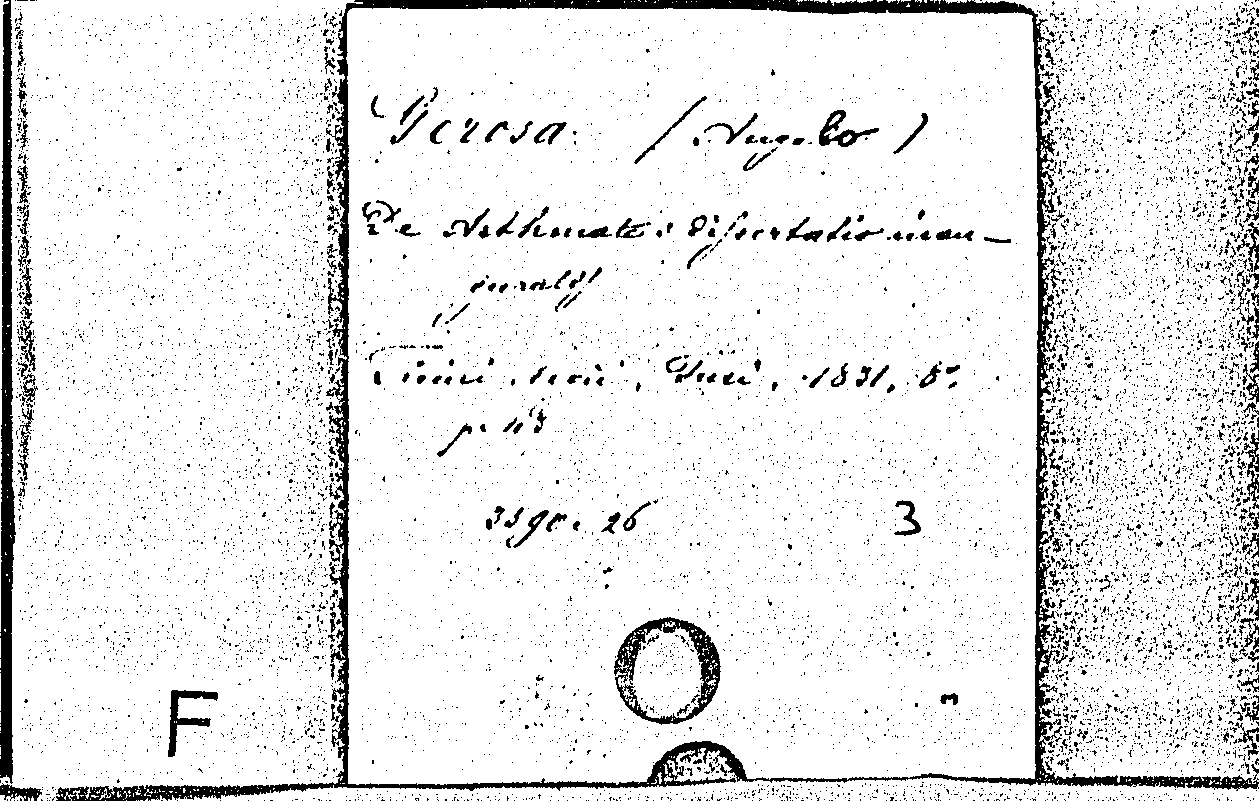 Gerosa (Angelo)
De Asthmate: dissertatio inau-
guralis
Ticini Regii, Fusi, 1831, 8°.
p.
3590. 26 3
F